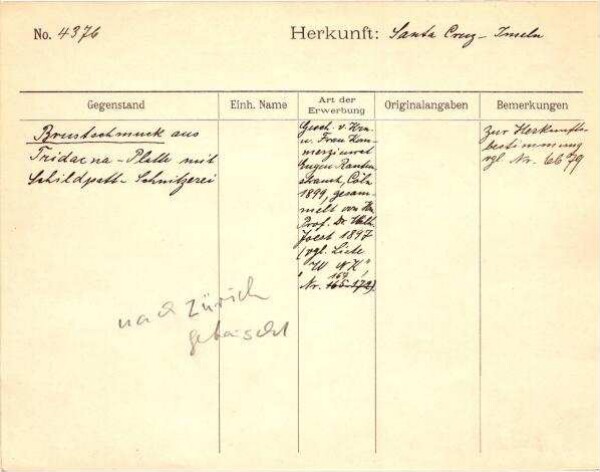 No. 4376
Herkunft: Santa Cruz-Inseln
Gegenstand
Einh. Name
Art der
Erwerbung
Originalangaben
Bemerkungen
Brustschmuck aus
Tridacna-Platte mit
Schildpatt-Schnitzerei
Gesch. v. Hrn.
u. Frau Kom-
merzienrat
Eugen Rauten-
strauch, Cöln
1899, gesam-
melt von Hn.
Prof. Dr. Wilh.
Joest 1897
(vgl. Liste
Nr.
zur Herkunfts-
bestimmung
vgl. Nr.
nach Zürich
getauscht